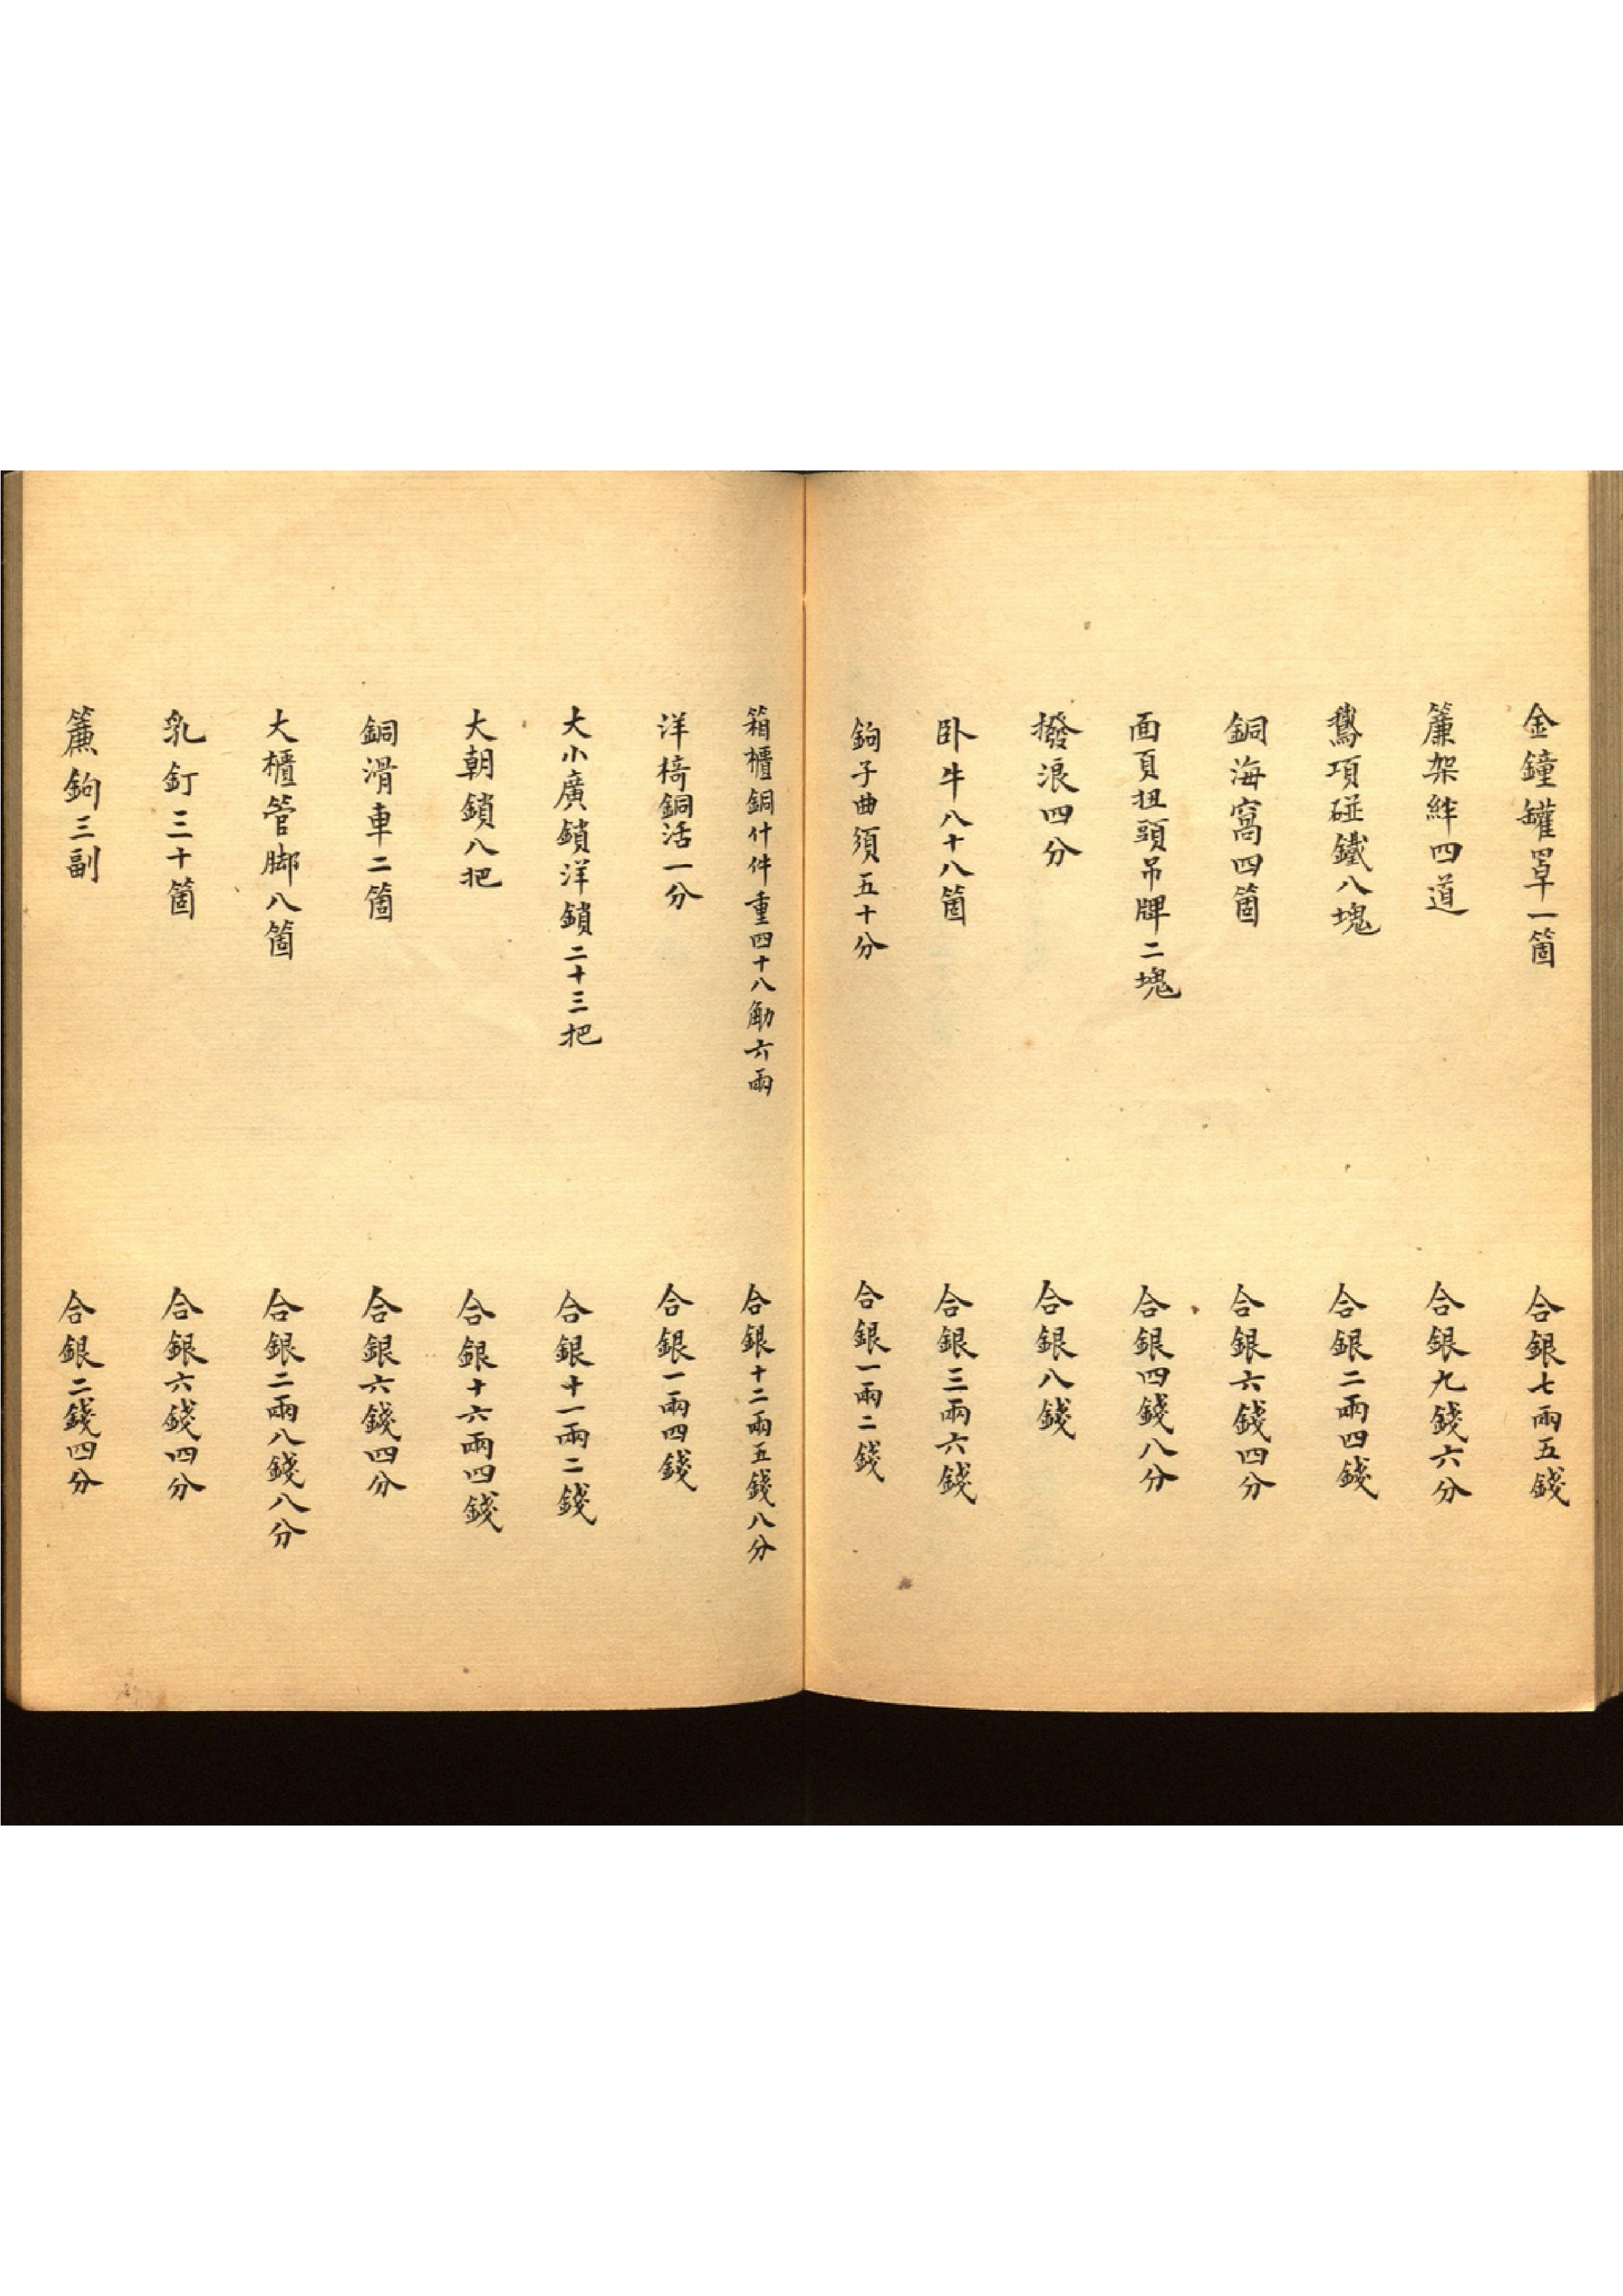 金鐘罐罩一箇 合銀七兩五錢
簾架絆四道 合銀九錢六分
鵞項碰鐵八塊 合銀二兩四錢
銅海窩四箇 合銀六錢四分
面頁扭頭吊牌二塊 合銀四錢八分
撥浪四分 合銀八錢
卧牛八十八箇 合銀三兩六錢
鉤子曲須五十分 合銀一兩二錢
箱櫃銅什件重四十八觔六兩 合銀十二兩五錢八分
洋椅銅活一分 合銀一兩四錢
大小廣鎖洋鎖二十三把 合銀十一兩二錢
大朝鎖八把 合銀十六兩四錢
銅滑車二箇 合銀六錢四分
大櫃管脚八箇 合銀二兩八錢八分
乳釘三十箇 合銀六錢四分
簾鉤三副 合銀二錢四分